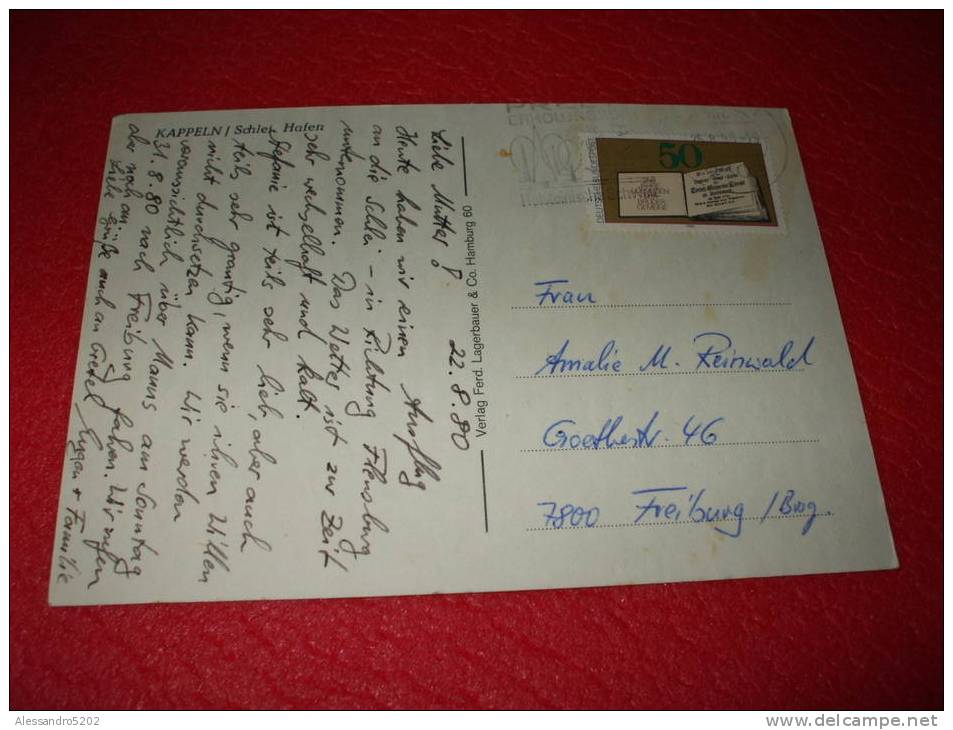 KAPPELN / Schlei, Hafen
22.8.80
Liebe Mutter!
Heute haben wir einen Ausflug
an die Schlei - in Richtung Flensburg
unternommen. Das Wetter ist zur Zeit
sehr wechselhaft und kalt.
Stefanie ist teils sehr lieb, aber auch
teils sehr grantig, wenn sie ihren Willen
nicht durchsetzen kann. Wir werden
voraussichtlich über Mamis am Sonntag
31.8.80 nach Freiburg fahren. Wir rufen
aber noch an
Liebe Grüße auch an Gretel
+ Familie
Verlag Ferd. Lagerbauer & Co. Hamburg 60
50
DEUTSCHE BUNDESPOST
Frau
Amalie M. Reinwald
Goethestr. 46
7800 Freiburg / Brsg.
Alessandro5202
www.delcampe.net